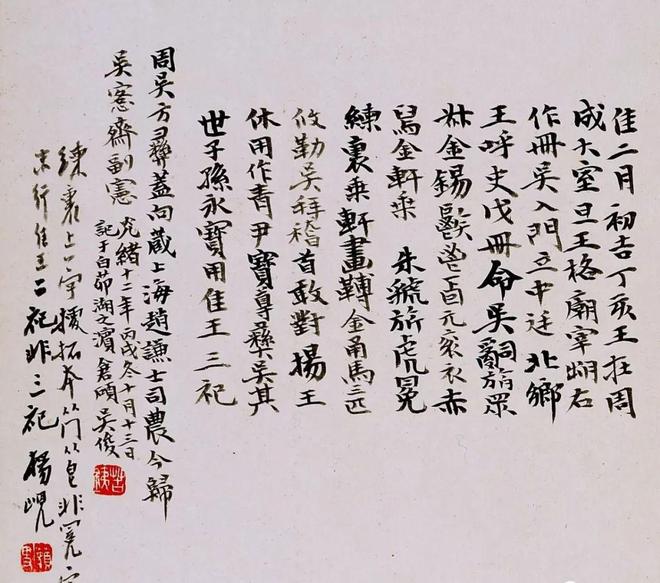 隹二月初吉丁亥王在周
成大室旦王格廟宰朏右
作冊吳入門立中廷北鄉
王呼史戊冊命吳嗣旃眾
金錫鬯卣元袞衣赤
舄金軒桒 朱虢旂虎冕
練裏桒軒畫轉金甬馬三匹
攸勒吳拜稽首敢對揚王
休用作青尹寶尊彝吳其
世子孫永寶用隹王三祀
周吳方彝蓋向藏上海趙謙士司農今歸
吳窓齋副憲
光緒十二年丙戌冬十月十三日
記于白茆湖之濱倉碩吳俊
苦鐵
練裏上一字據拓本從從皀非冕字
末行隹王二祀非三祀 楊峴